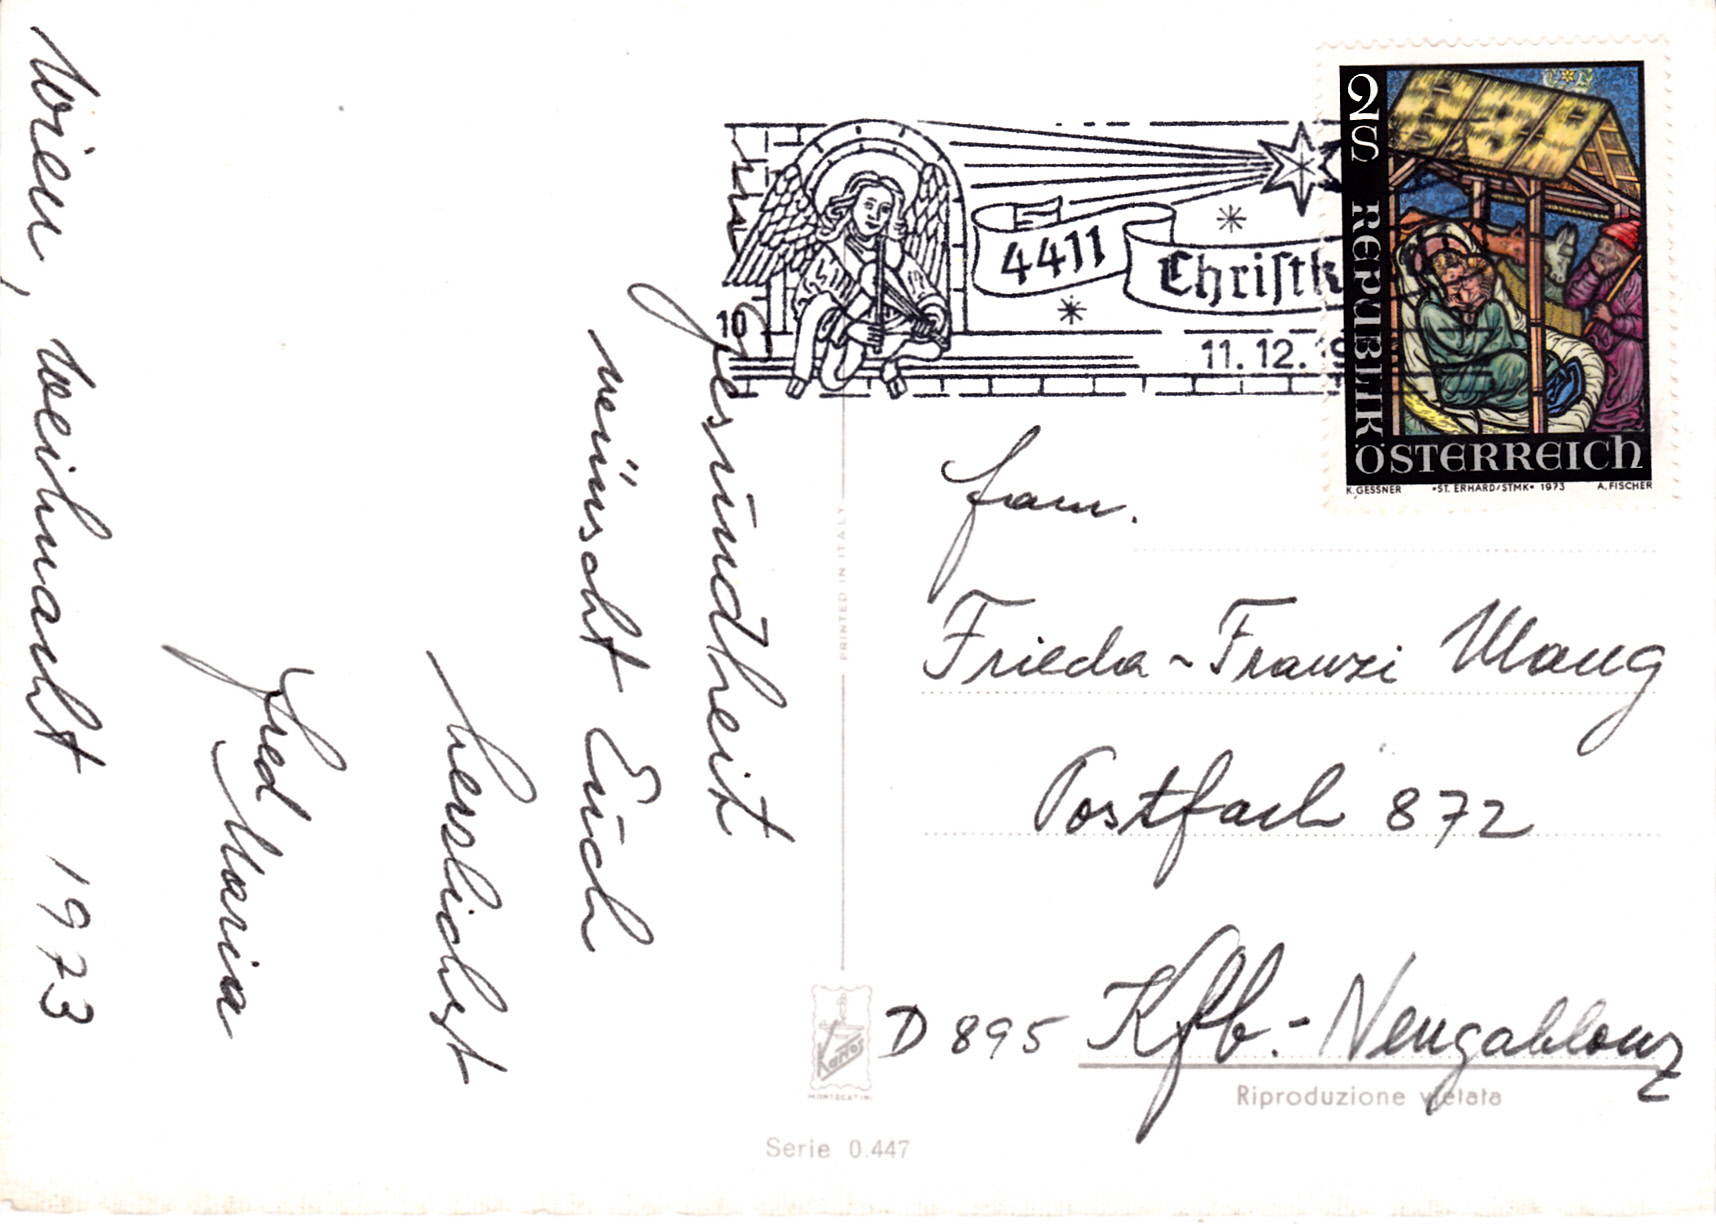 Wien, Weihnacht 1973
Gesundheit
wünscht Euch
herzlichst
Fred Maria
10
4411
Christk
11.12.19
2S
REPUBLIK
ÖSTERREICH
K. GESSNER •ST. ERHARD/STMK• 1973 A. FISCHER
Fam.
Frieda - Franzi Maug
Postfach 872
D 895 Kfb.-Neugablonz
PRINTED IN ITALY
Kartos
MONTECATINI
Riproduzione vietata
Serie 0.447